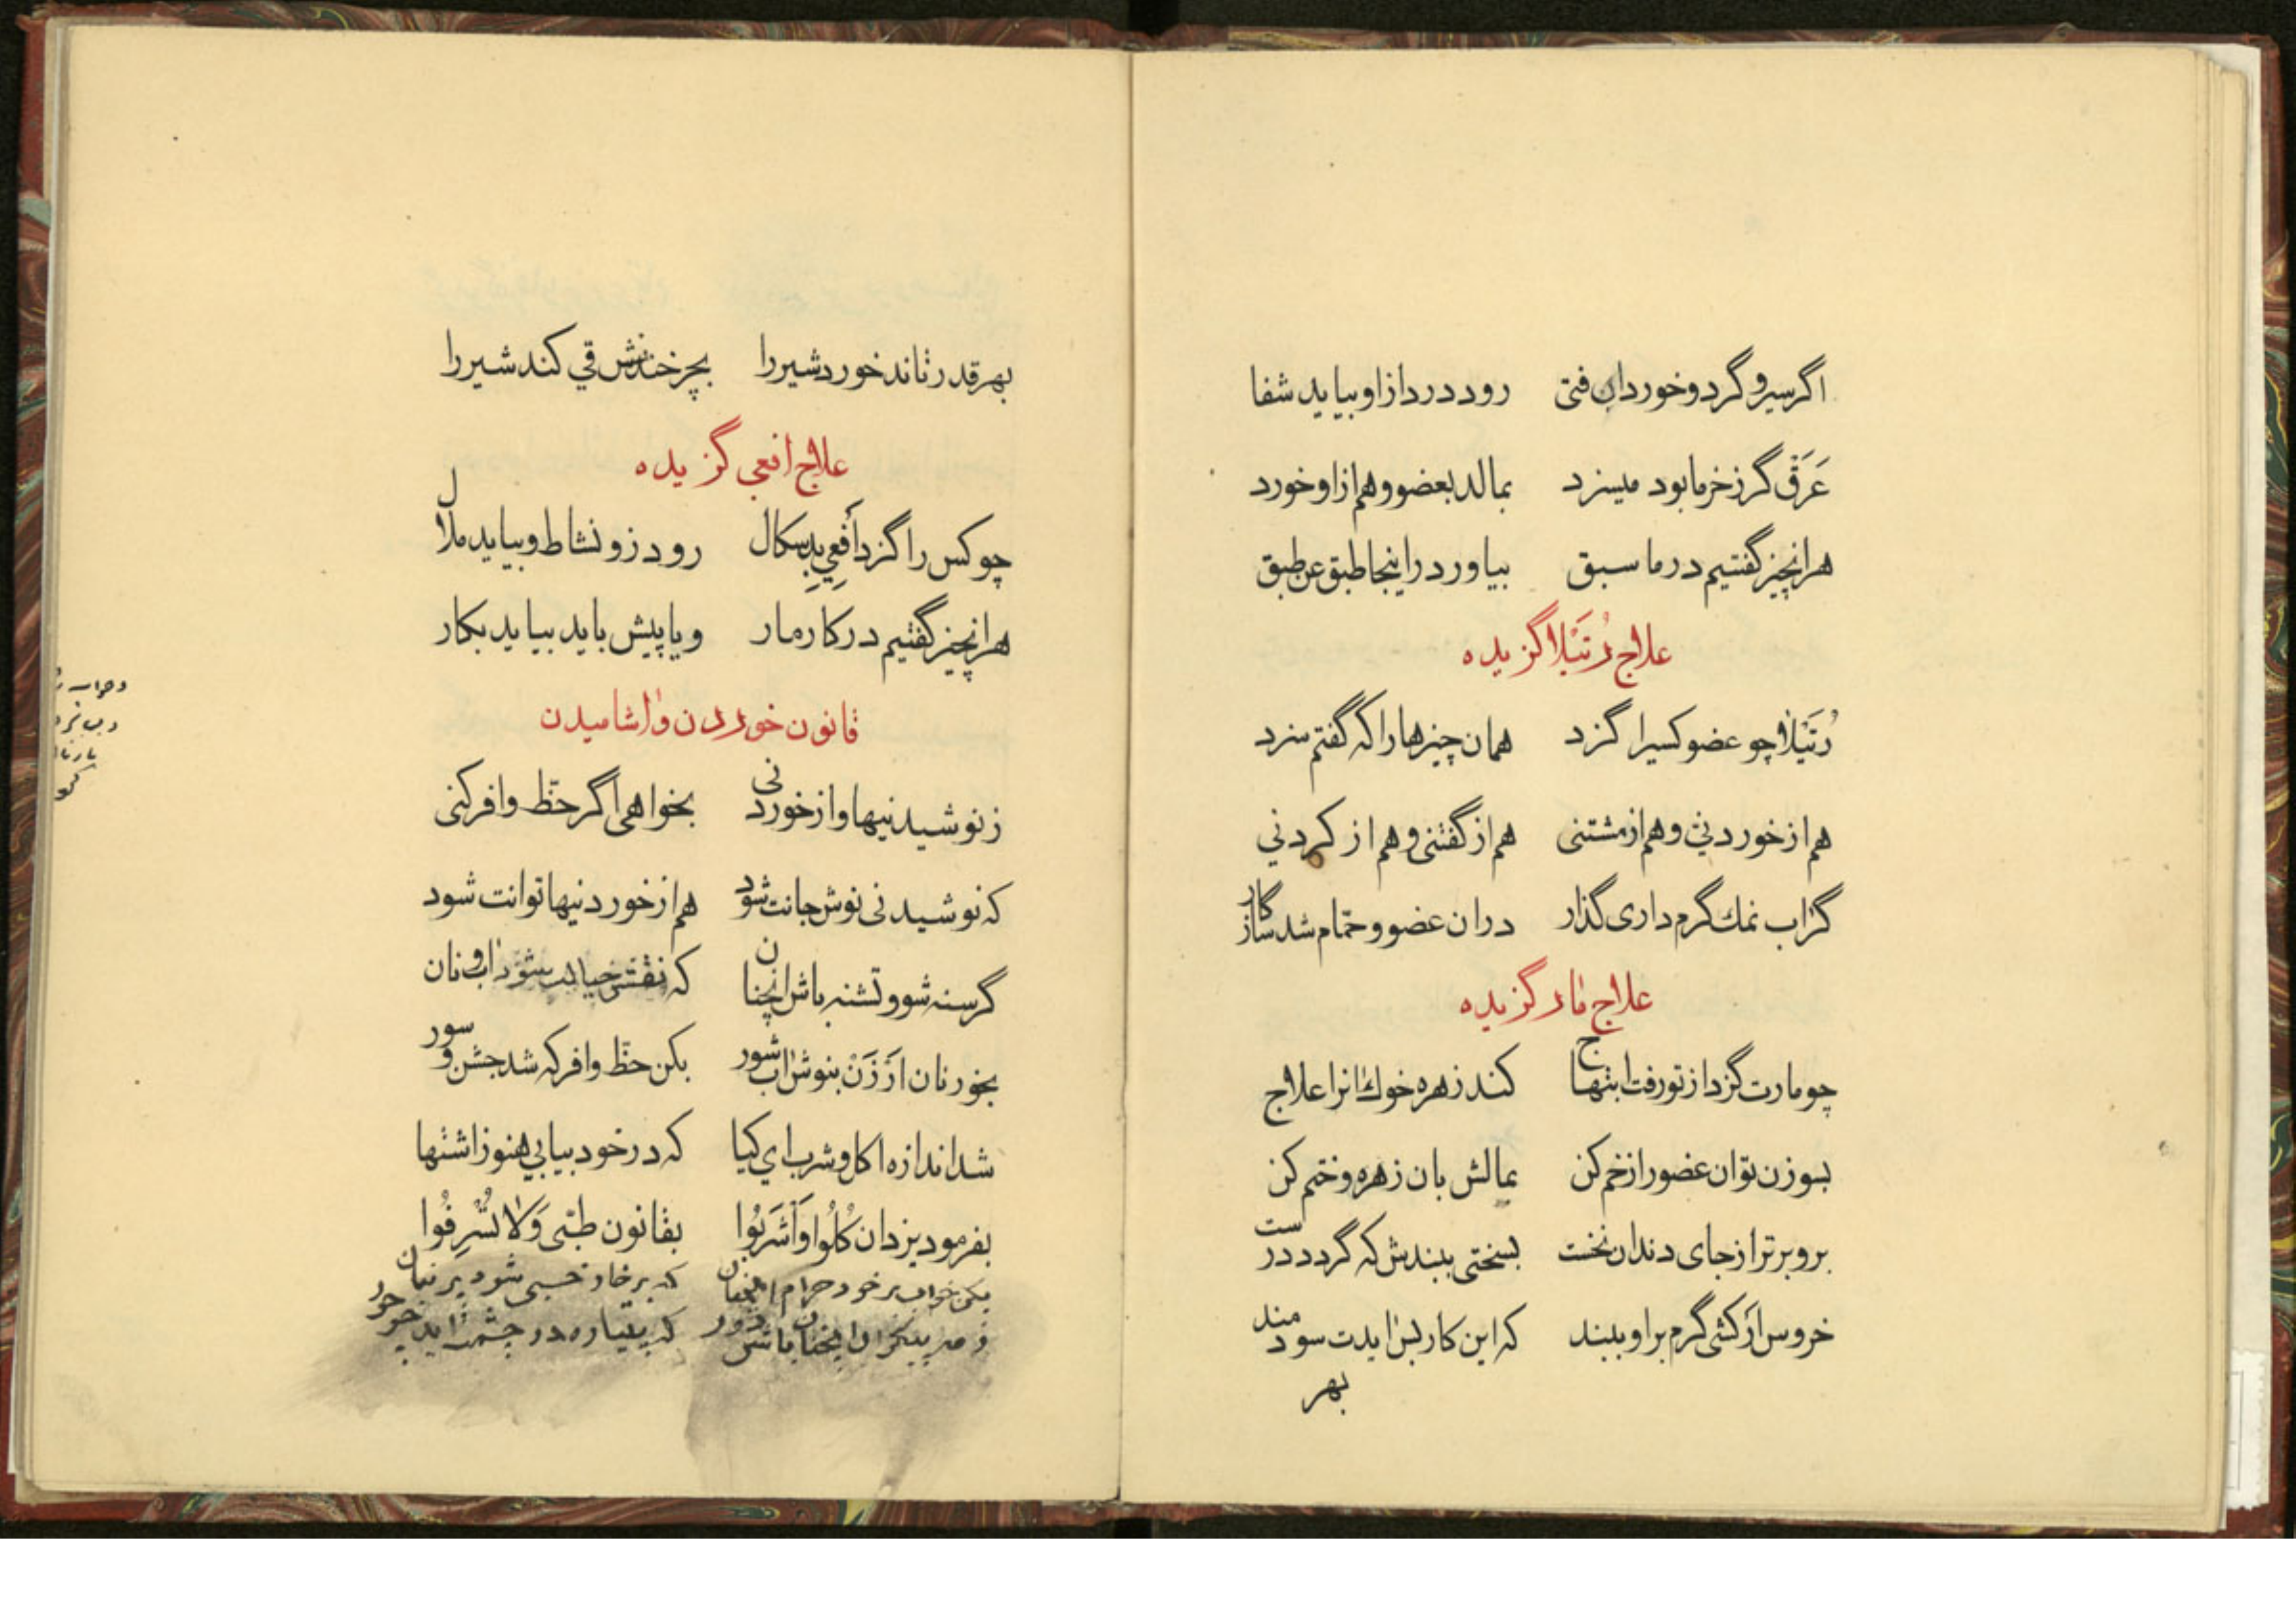 اگر سیر و گردو خورد ان فتی رود درد ازاو بیاید شفا
عَرَق گر ز خرما بود میسزد بمالد بعضو و هم ازاو خورد
هرانچیز گفتیم در ما سبق بیاورد در اینجا طبق عن طبق
علاج رُتَیْلا گزیده
رُتَیْلا چو عضو کسیرا گزد همان چیزها را که گفتم سزد
هم از خوردنی و هم از مشتنی هم از گفتنی و هم از کردنی
گر اب نمك گرم داری گذار دران عضو و حمّام شد سازکار
علاج مار گزیده
چو مارت گزد از تو رفت ابتهاج کند زهره خوك انرا علاج
بسوزن توان عضو را زخم کن بمالش بان زهره و ختم کن
برو برتر از جای دندان نخست بسختی ببندش که گردد درست
خروس ار کشی گرم بر او ببند که این کار بس ایدت سودمند
بهر
بهر قدر تاند خورد شیر را بچرخندنش قی کند شیر را
علاج افعی گزیده
چو کس را گزد أفعیِ بدسکال رود زو نشاط و بیاید ملال
هرانچیز گفتیم در کار مار و یا پیش باید بیاید بکار
قانون خوردن و اشامیدن
ز نوشیدنیها و از خوردنی بخواهی اگر حظّ وافر کنی
که نوشیدنی نوش جانت شود هم از خوردنیها توانت شود
گرسنه شو و تشنه باش انچنان که نقش خیالت شود اب و نان
بخور نان اَرْزَنْ بنوش اب شور بکن حظّ وافر که شد جشن و سور
شد اندازه اکل و شرب ای کیا که در خود بیابی هنوز اشتها
بفرمود یزدان کُلُوا وَاْشَرَبُوا بقانون طبّی وَلا تُسْرِفُوا
بکن خواب بر خود حرام انچنان که بر خار خسبی شود پرنیان
ز مه پیکران انچنان باش دور که پتیاره در چشمت اید چو حور